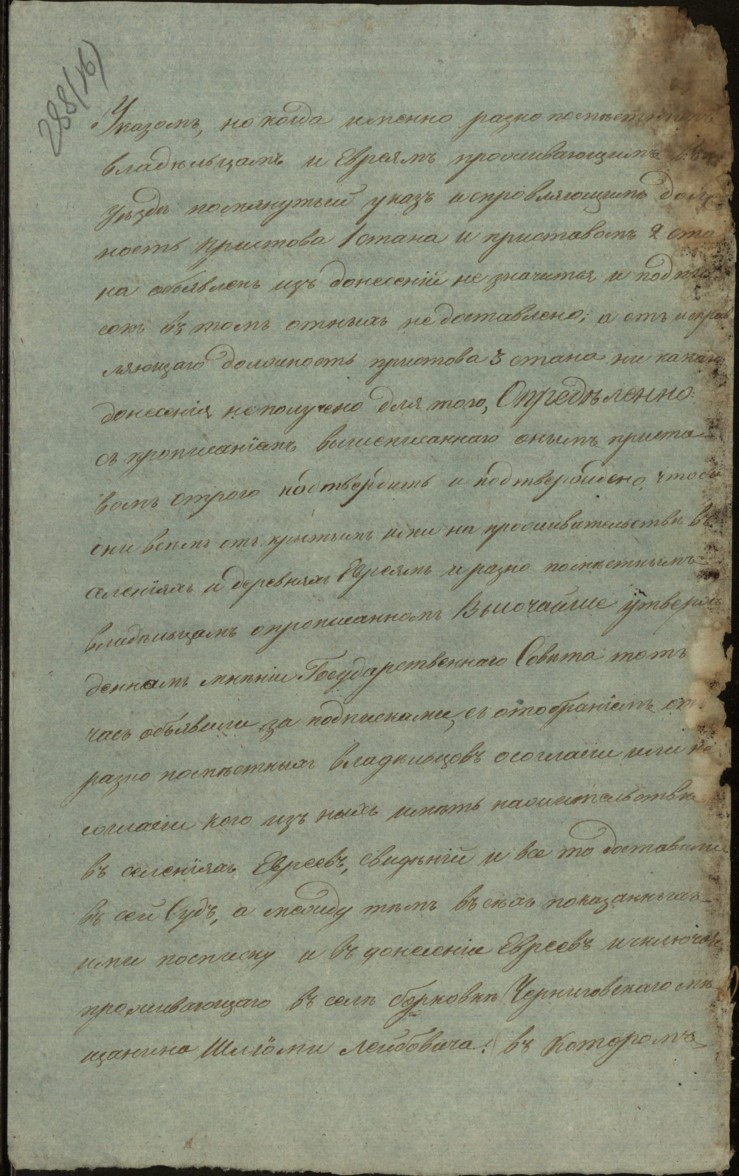 288(16)
Указомъ, но когда именно разнопоместнымъ
владельцамъ и Евреямъ проживающимъ
уезде помянутый указъ исправляющимъ долж-
ность пристава 1 стана и приставомъ 2 ста
на объявленъ изъ донесений не значится и подпи
сокъ в томъ отныхъ недоставлено; а отъ исправ
ляющаго должность пристава 3 стана ни какого
донесения неполучено для того, Определенно:
съ прописаниемъ вышеписаннаго онымъ приста-
вомъ строго и подтверждено, чтобы
они всемъ на проживательстве в
селенияхъ и деревняхъ Евреямъ и разно поместнымъ
владельцамъ опрописанномъ Высочайше утверж
денномъ мнении Государственнаго Совета тотъ
часъ объявили за подписками, съ отобраниемъ от
разно поместныхъ владельцовъ осогласии или не
согласии кого изъ ныхъ иметь нажительстве
въ селенияхъ Евреевъ, сведений и все то доставили
въ сей Судъ, а между темъ въ показанныхъ
ими посписку и въ донесении Евреевъ исключая
проживающаго въ селе бурковке Черниговскаго ме
щанина Шлиомы Лейбовича: въ Которомъ